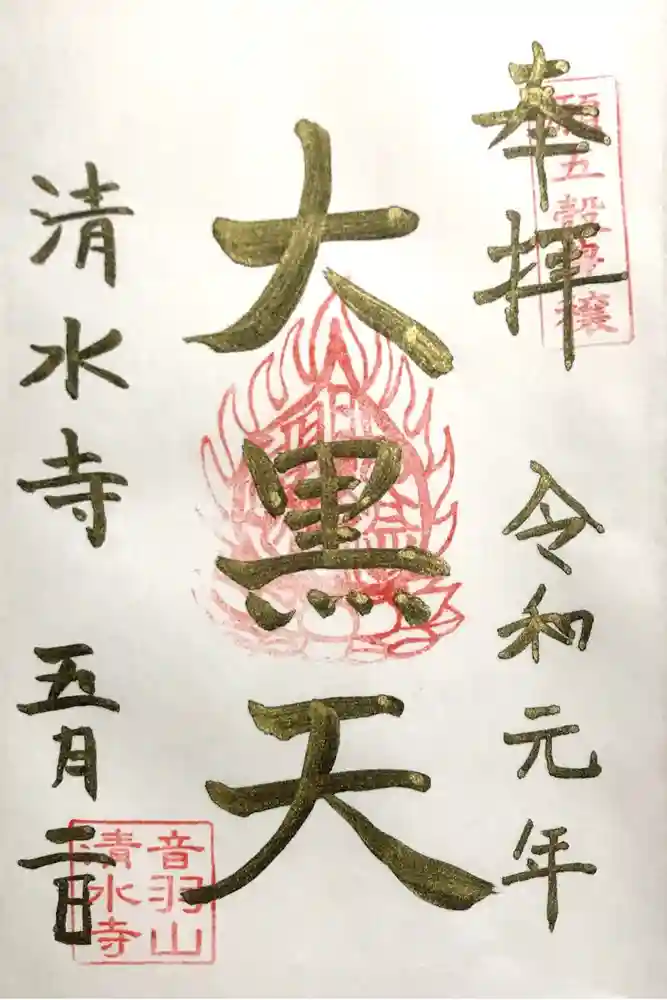 奉拝 令和元年
願五穀豊穣
大黒天
清水寺 五月二日
音羽山
清水寺